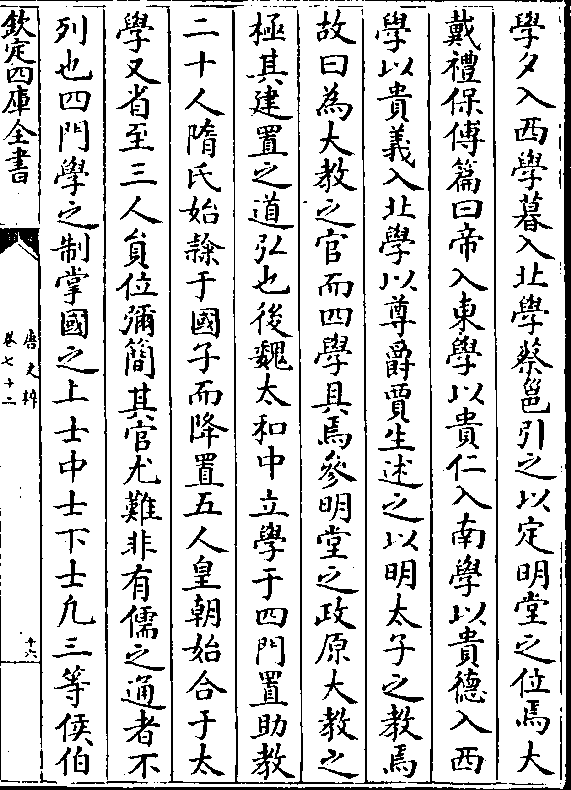 學夕入西學暮入北學蔡邕引之以定明堂之位焉大
戴禮保傅篇曰帝入東學以貴仁入南學以貴德入西
學以貴義入北學以尊爵賈生述之以明太子之教焉
故曰為大教之官而四學具焉參明堂之政原大教之
極其建置之道弘也後魏太和中立學于四門置助教
二十人隋氏始隸于國子而降置五人皇朝始合于太
學又省至三人負位彌簡其官尤難非有儒之通者不
列也四門學之制掌國之上士中士下士凡三等侯伯
欽定四庫全書
唐文粹
卷七十二
十六